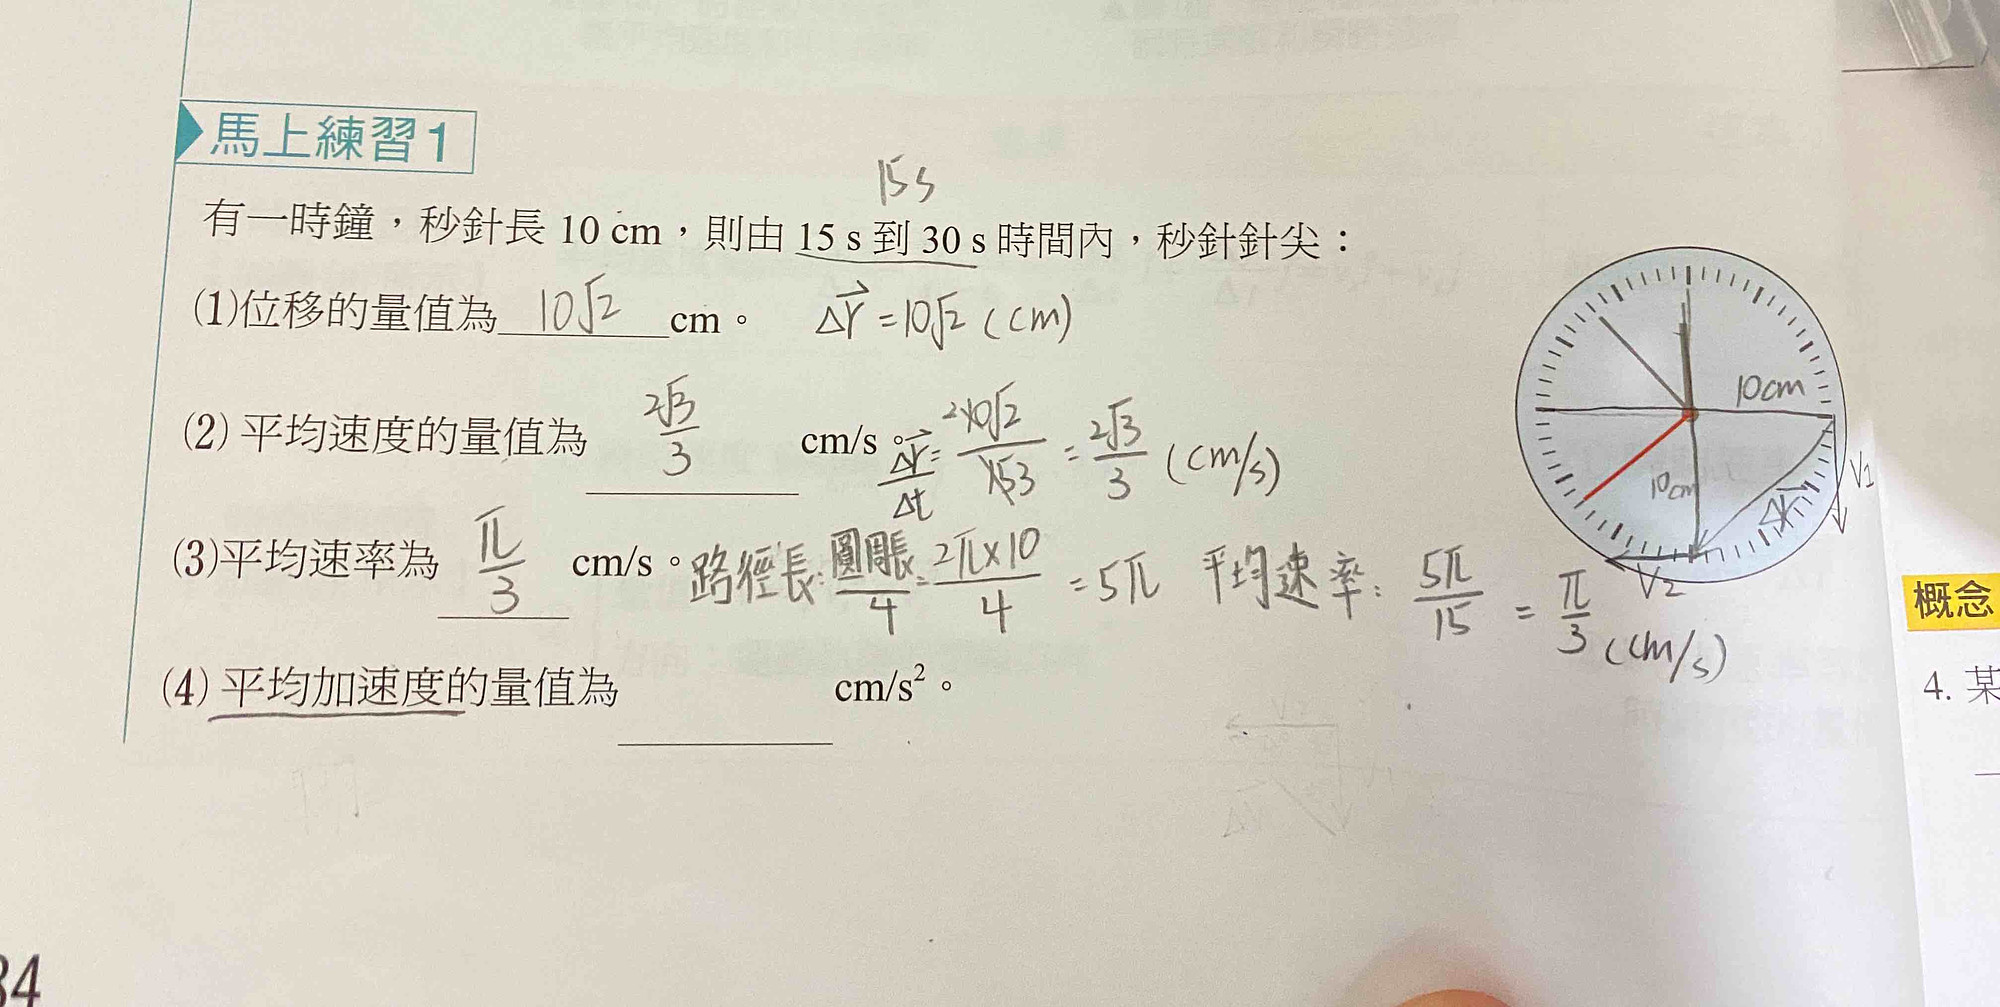 馬上練習1
15s
有一時鐘，秒針長 10 cm，則由 15 s 到 30 s 時間內，秒針針尖：
(1)位移的量值為 10√2 cm。 Δr⃗ = 10√2 (cm)
(2)平均速度的量值為 2√3/3 cm/s。 Δr⃗/Δt = 2 10√2/15 3 = 2√3/3 (cm/s)
(3)平均速率為 π/3 cm/s。路徑長: 圓周長/4 = 2π×10/4 = 5π 平均速率: 5π/15 = π/3 (cm/s)
(4)平均加速度的量值為 cm/s²。
10cm
10cm
Δr⃗
V1
V2
概念
4. 某
34